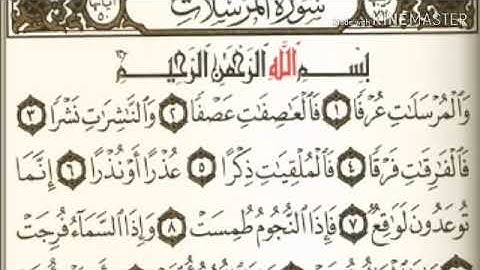 سُورَةُ الْمُرْسَلَاتِ
Made with KINEMASTER
بِسْمِ اللَّهِ الرَّحْمَٰنِ الرَّحِيمِ
وَالْمُرْسَلَاتِ عُرْفًا ١ فَالْعَاصِفَاتِ عَصْفًا ٢ وَالنَّاشِرَاتِ نَشْرًا ٣
فَالْفَارِقَاتِ فَرْقًا ٤ فَالْمُلْقِيَاتِ ذِكْرًا ٥ عُذْرًا أَوْ نُذْرًا ٦ إِنَّمَا
تُوعَدُونَ لَوَاقِعٌ ٧ فَإِذَا النُّجُومُ طُمِسَتْ ٨ وَإِذَا السَّمَاءُ فُرِجَتْ